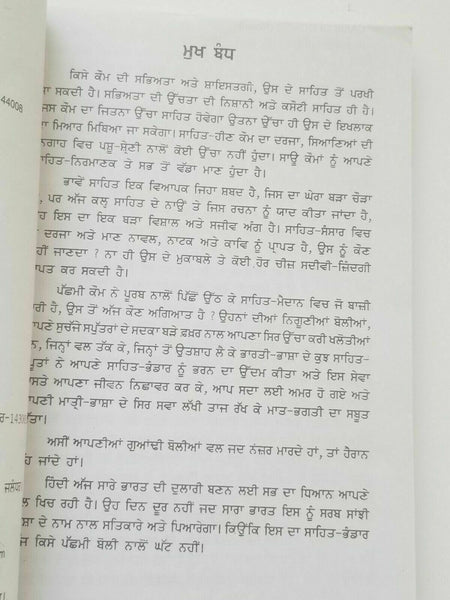 ਮੁਖ ਬੰਧ
ਕਿਸੇ ਕੌਮ ਦੀ ਸਭਿਅਤਾ ਅਤੇ ਸ਼ਾਇਸਤਗੀ, ਉਸ ਦੇ ਸਾਹਿਤ ਤੋਂ ਪਰਖੀ
ਜਾ ਸਕਦੀ ਹੈ। ਸਭਿਅਤਾ ਦੀ ਉੱਚਤਾ ਦੀ ਨਿਸ਼ਾਨੀ ਅਤੇ ਕਸੌਟੀ ਸਾਹਿਤ ਹੀ ਹੈ।
44008
ਜਿਸ ਕੌਮ ਦਾ ਜਿਤਨਾ ਉੱਚਾ ਸਾਹਿਤ ਹੋਵੇਗਾ ਉਤਨਾ ਉੱਚਾ ਹੀ ਉਸ ਦੇ ਇਖਲਾਕ
ਦਾ ਮਿਆਰ ਮਿਥਿਆ ਜਾ ਸਕੇਗਾ। ਸਾਹਿਤ-ਹੀਣ ਕੌਮ ਦਾ ਦਰਜਾ, ਸਿਆਣਿਆਂ ਦੀ
ਨਿਗਾਹ ਵਿਚ ਪਸ਼ੂ-ਸ਼੍ਰੇਣੀ ਨਾਲੋਂ ਕੋਈ ਉੱਚਾ ਨਹੀਂ ਹੁੰਦਾ। ਸਾਊ ਕੌਮਾਂ ਨੂੰ ਆਪਣੇ
ਸਾਹਿਤ-ਨਿਰਮਾਣਕ ਤੇ ਸਭ ਤੋਂ ਵੱਡਾ ਮਾਣ ਹੁੰਦਾ ਹੈ।
ਭਾਵੇਂ ਸਾਹਿਤ ਇਕ ਵਿਆਪਕ ਜਿਹਾ ਸ਼ਬਦ ਹੈ, ਜਿਸ ਦਾ ਘੇਰਾ ਬੜਾ ਚੌੜਾ
, ਪਰ ਅੱਜ ਕਲ੍ਹ ਸਾਹਿਤ ਦੇ ਨਾਉਂ ਤੇ ਜਿਸ ਰਚਨਾ ਨੂੰ ਯਾਦ ਕੀਤਾ ਜਾਂਦਾ ਹੈ,
ਹ ਇਸ ਦਾ ਇਕ ਬੜਾ ਵਿਸ਼ਾਲ ਅਤੇ ਸਜੀਵ ਅੰਗ ਹੈ। ਸਾਹਿਤ-ਸੰਸਾਰ ਵਿਚ
ਦਰਜਾ ਅਤੇ ਮਾਣ ਨਾਵਲ, ਨਾਟਕ ਅਤੇ ਕਾਵਿ ਨੂੰ ਪ੍ਰਾਪਤ ਹੈ, ਉਸ ਨੂੰ ਕੌਣ
ਹੀਂ ਜਾਣਦਾ ? ਨਾ ਹੀ ਉਸ ਦੇ ਮੁਕਾਬਲੇ ਤੇ ਕੋਈ ਹੋਰ ਚੀਜ਼ ਸਦੀਵੀ-ਜ਼ਿੰਦਗੀ
ਰਾਪਤ ਕਰ ਸਕਦੀ ਹੈ।
ਪੱਛਮੀ ਕੌਮ ਨੇ ਪੂਰਬ ਨਾਲੋਂ ਪਿੱਛੋਂ ਉੱਠ ਕੇ ਸਾਹਿਤ-ਮੈਦਾਨ ਵਿਚ ਜੋ ਬਾਜ਼ੀ
ਾਰੀ ਹੈ, ਉਸ ਤੋਂ ਅੱਜ ਕੌਣ ਅਗਿਆਤ ਹੈ ? ਉਹਨਾਂ ਦੀਆਂ ਨਿਗੂਣੀਆਂ ਬੋਲੀਆਂ,
ਆਪਣੇ ਸੁਚੱਜੇ ਸਪੁੱਤਰਾਂ ਦੇ ਸਦਕਾ ਬੜੇ ਫ਼ਖ਼ਰ ਨਾਲ ਆਪਣਾ ਸਿਰ ਉੱਚਾ ਕਰੀ ਖਲੋਤੀਆਂ
ਨ, ਜਿਨ੍ਹਾਂ ਵਲ ਤੱਕ ਕੇ, ਜਿਨ੍ਹਾਂ ਤੋਂ ਉਤਸ਼ਾਹ ਲੈ ਕੇ ਭਾਰਤੀ-ਭਾਸ਼ਾ ਦੇ ਕੁਝ ਸਾਹਿਤ-
ਪੂਤਾਂ ਨੇ ਆਪਣੇ ਸਾਹਿਤ-ਭੰਡਾਰ ਨੂੰ ਭਰਨ ਦਾ ਉੱਦਮ ਕੀਤਾ ਅਤੇ ਇਸ ਸੇਵਾ
ਾਸਤੇ ਆਪਣਾ ਜੀਵਨ ਨਿਛਾਵਰ ਕਰ ਕੇ, ਆਪ ਸਦਾ ਲਈ ਅਮਰ ਹੋ ਗਏ ਅਤੇ
ਾਪਣੀ ਮਾਤ੍ਰੀ-ਭਾਸ਼ਾ ਦੇ ਸਿਰ ਸਵਾ ਲੱਖੀ ਤਾਜ ਰੱਖ ਕੇ ਮਾਤ-ਭਗਤੀ ਦਾ ਸਬੂਤ
ਿੱਤਾ।
ਅਸੀਂ ਆਪਣੀਆਂ ਗੁਆਂਢੀ ਬੋਲੀਆਂ ਵਲ ਜਦ ਨਜ਼ਰ ਮਾਰਦੇ ਹਾਂ, ਤਾਂ ਹੈਰਾਨ
ਹ ਜਾਂਦੇ ਹਾਂ।
ਹਿੰਦੀ ਅੱਜ ਸਾਰੇ ਭਾਰਤ ਦੀ ਦੁਲਾਰੀ ਬਣਨ ਲਈ ਸਭ ਦਾ ਧਿਆਨ ਆਪਣੇ
ਲ ਖਿਚ ਰਹੀ ਹੈ। ਉਹ ਦਿਨ ਦੂਰ ਨਹੀਂ ਜਦ ਸਾਰਾ ਭਾਰਤ ਇਸ ਨੂੰ ਸਰਬ ਸਾਂਝੀ
ਾਸ਼ਾ ਦੇ ਨਾਮ ਨਾਲ ਸਤਿਕਾਰੇ ਅਤੇ ਪਿਆਰੇਗਾ। ਕਿਉਂਕਿ ਇਸ ਦਾ ਸਾਹਿਤ-ਭੰਡਾਰ
ਜ ਕਿਸੇ ਪੱਛਮੀ ਬੋਲੀ ਨਾਲੋਂ ਘੱਟ ਨਹੀਂ।